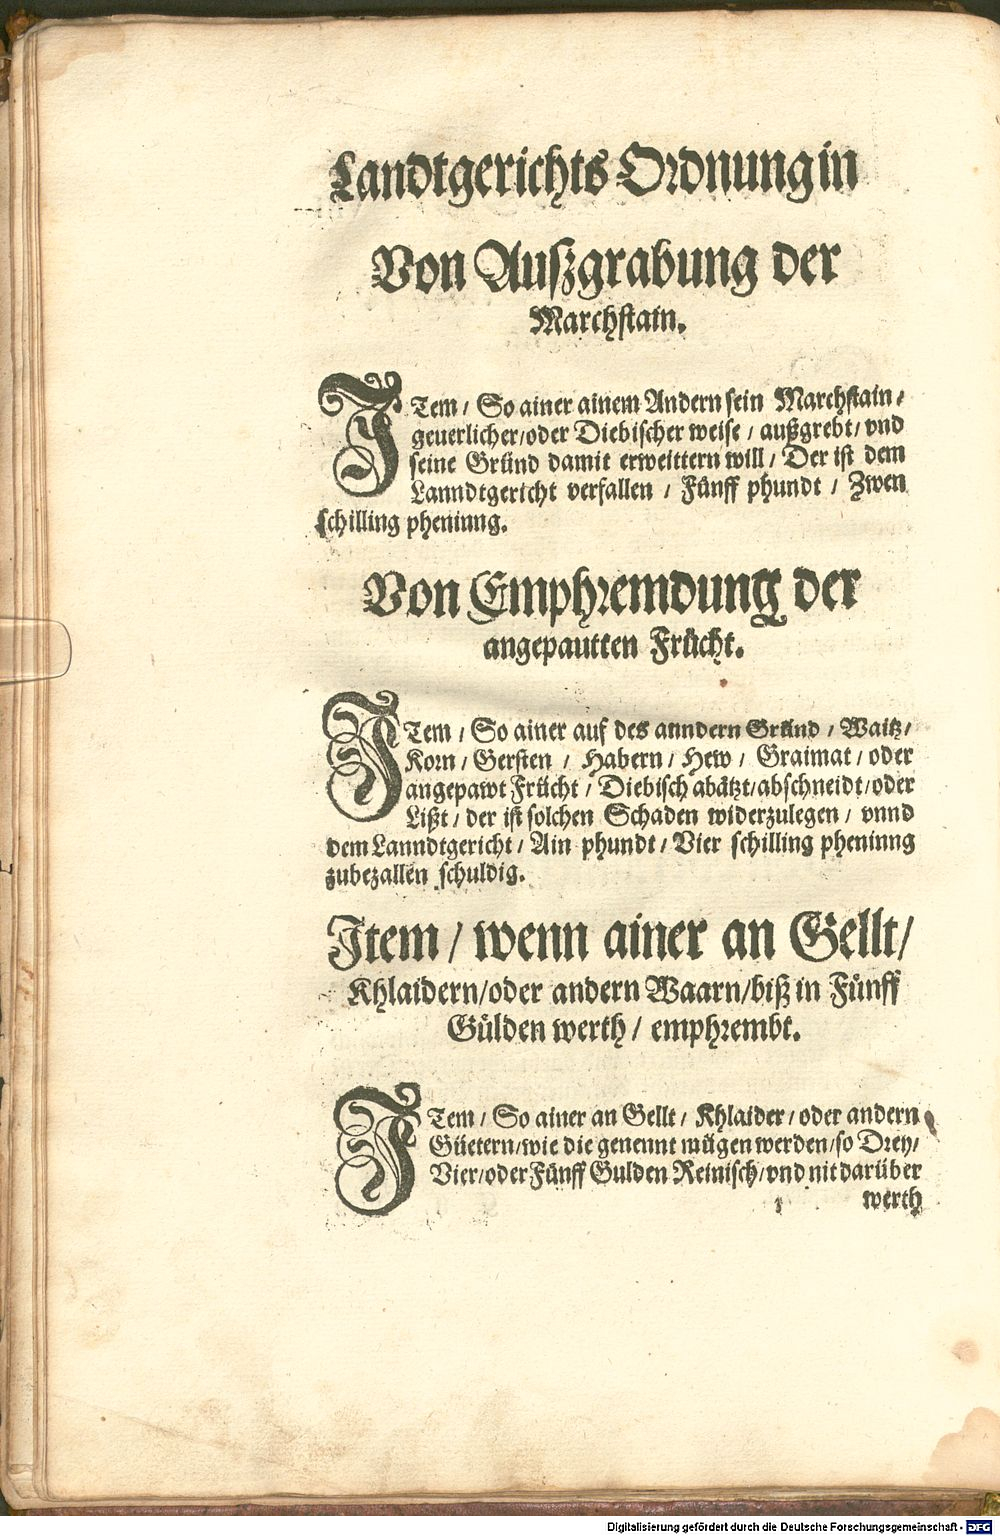 Landtgerichts Ordnung in
Von Außgrabung der
Marchstain.
ITem / So ainer ainem Andern sein Marchstain /
geuerlicher / oder Diebischer weise / außgrebt / vnd
seine Gründ damit erweittern will / Der ist dem
Lanndtgericht verfallen / Fünff phundt / Zwen
schilling pheninng.
Von Emphremdung der
angepautten Frücht.
ITem / So ainer auf des anndern Gründ / Waitz /
Korn / Gersten / Habern / Hew / Graimat / oder
angepawt Frücht / Diebisch abätzt / abschneidt / oder
Lißt / der ist solchen Schaden widerzulegen / vnnd
dem Lanndtgericht / Ain phundt / Vier schilling pheninng
zubezallen schuldig.
Item / wenn ainer an Gellt /
Khlaidern / oder andern Waarn / biß in Fünff
Gülden werth / emphrembt.
ITem / So ainer an Gellt / Khlaider / oder andern
Güetern / wie die genennt mügen werden / so Drey /
Vier / oder Fünff Gulden Reinisch / vnd nit darüber
werth
Digitalisierung gefördert durch die Deutsche Forschungsgemeinschaft - DFG